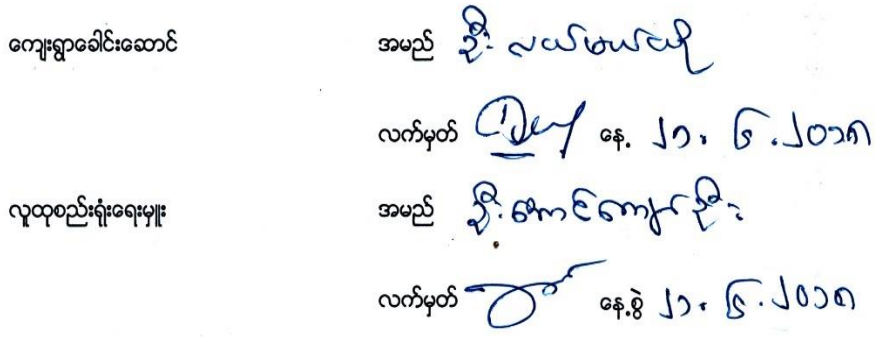 ကျေးရွာခေါင်းဆောင် အမည် ဦး လယ်မယ်ယို
လက်မှတ် နေ့. ၂၁. ၆. ၂၀၁၈
လူထုစည်းရုံးရေးမှူး အမည် ဦးအောင်ကျော်ဦး
လက်မှတ် နေ့.စွဲ ၂၁. ၆. ၂၀၁၈